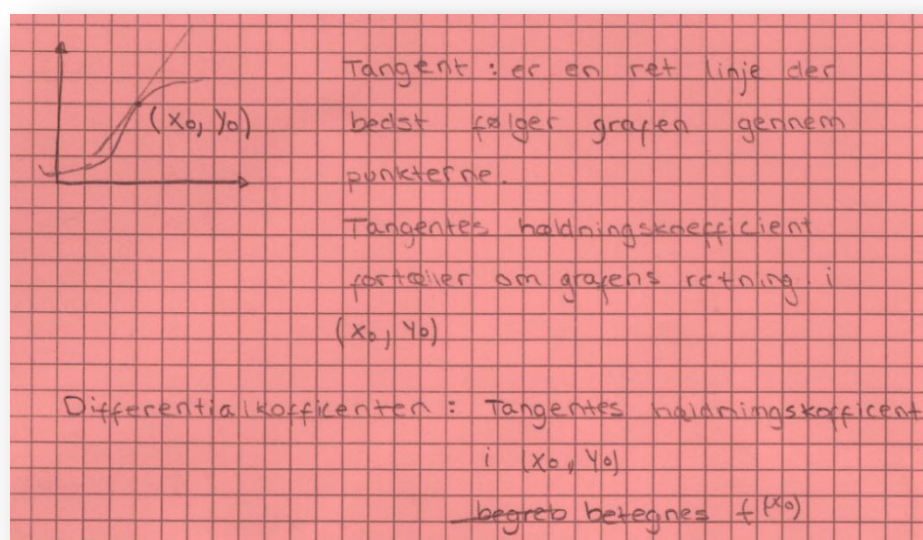 Tangent : er en ret linje der
(x₀, y₀)
bedst følger grafen gennem
punkterne.
Tangentes hældningskoefficient
fortæller om grafens retning i
(x₀, y₀)
Differentialkofficenten : Tangentes hældningskofficent
i (x₀, y₀)
begreb betegnes f(x₀)